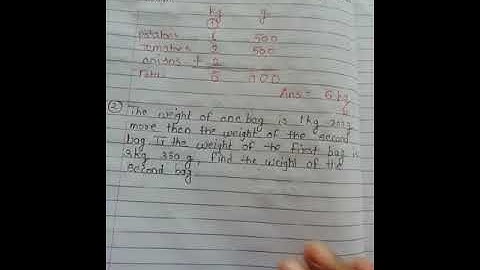 kg g
1
potatoes 1 500
tomatoes 2 500
onions + 2
6 000
Ans = 6 kg
② The weight of one bag is 1kg 200g
more then the weight of the second
bag. If the weight of the first bag is
350 g, find the weight of the
second bag